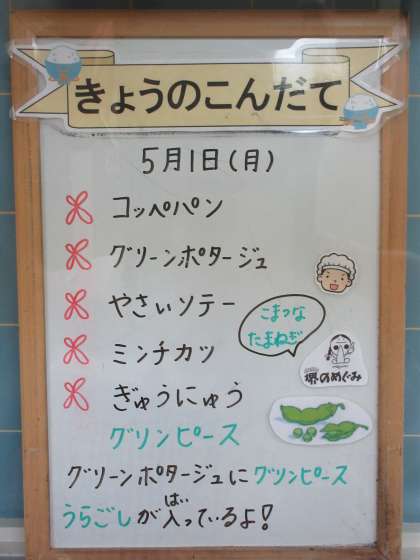 きょうのこんだて
5月1日(月)
コッペパン
グリーンポタージュ
やさいソテー
こまつな
たまねぎ
ミンチカツ
堺のめぐみ
ぎゅうにゅう
グリンピース
グリーンポタージュにグリンピース
うらごしが入っているよ!
はい